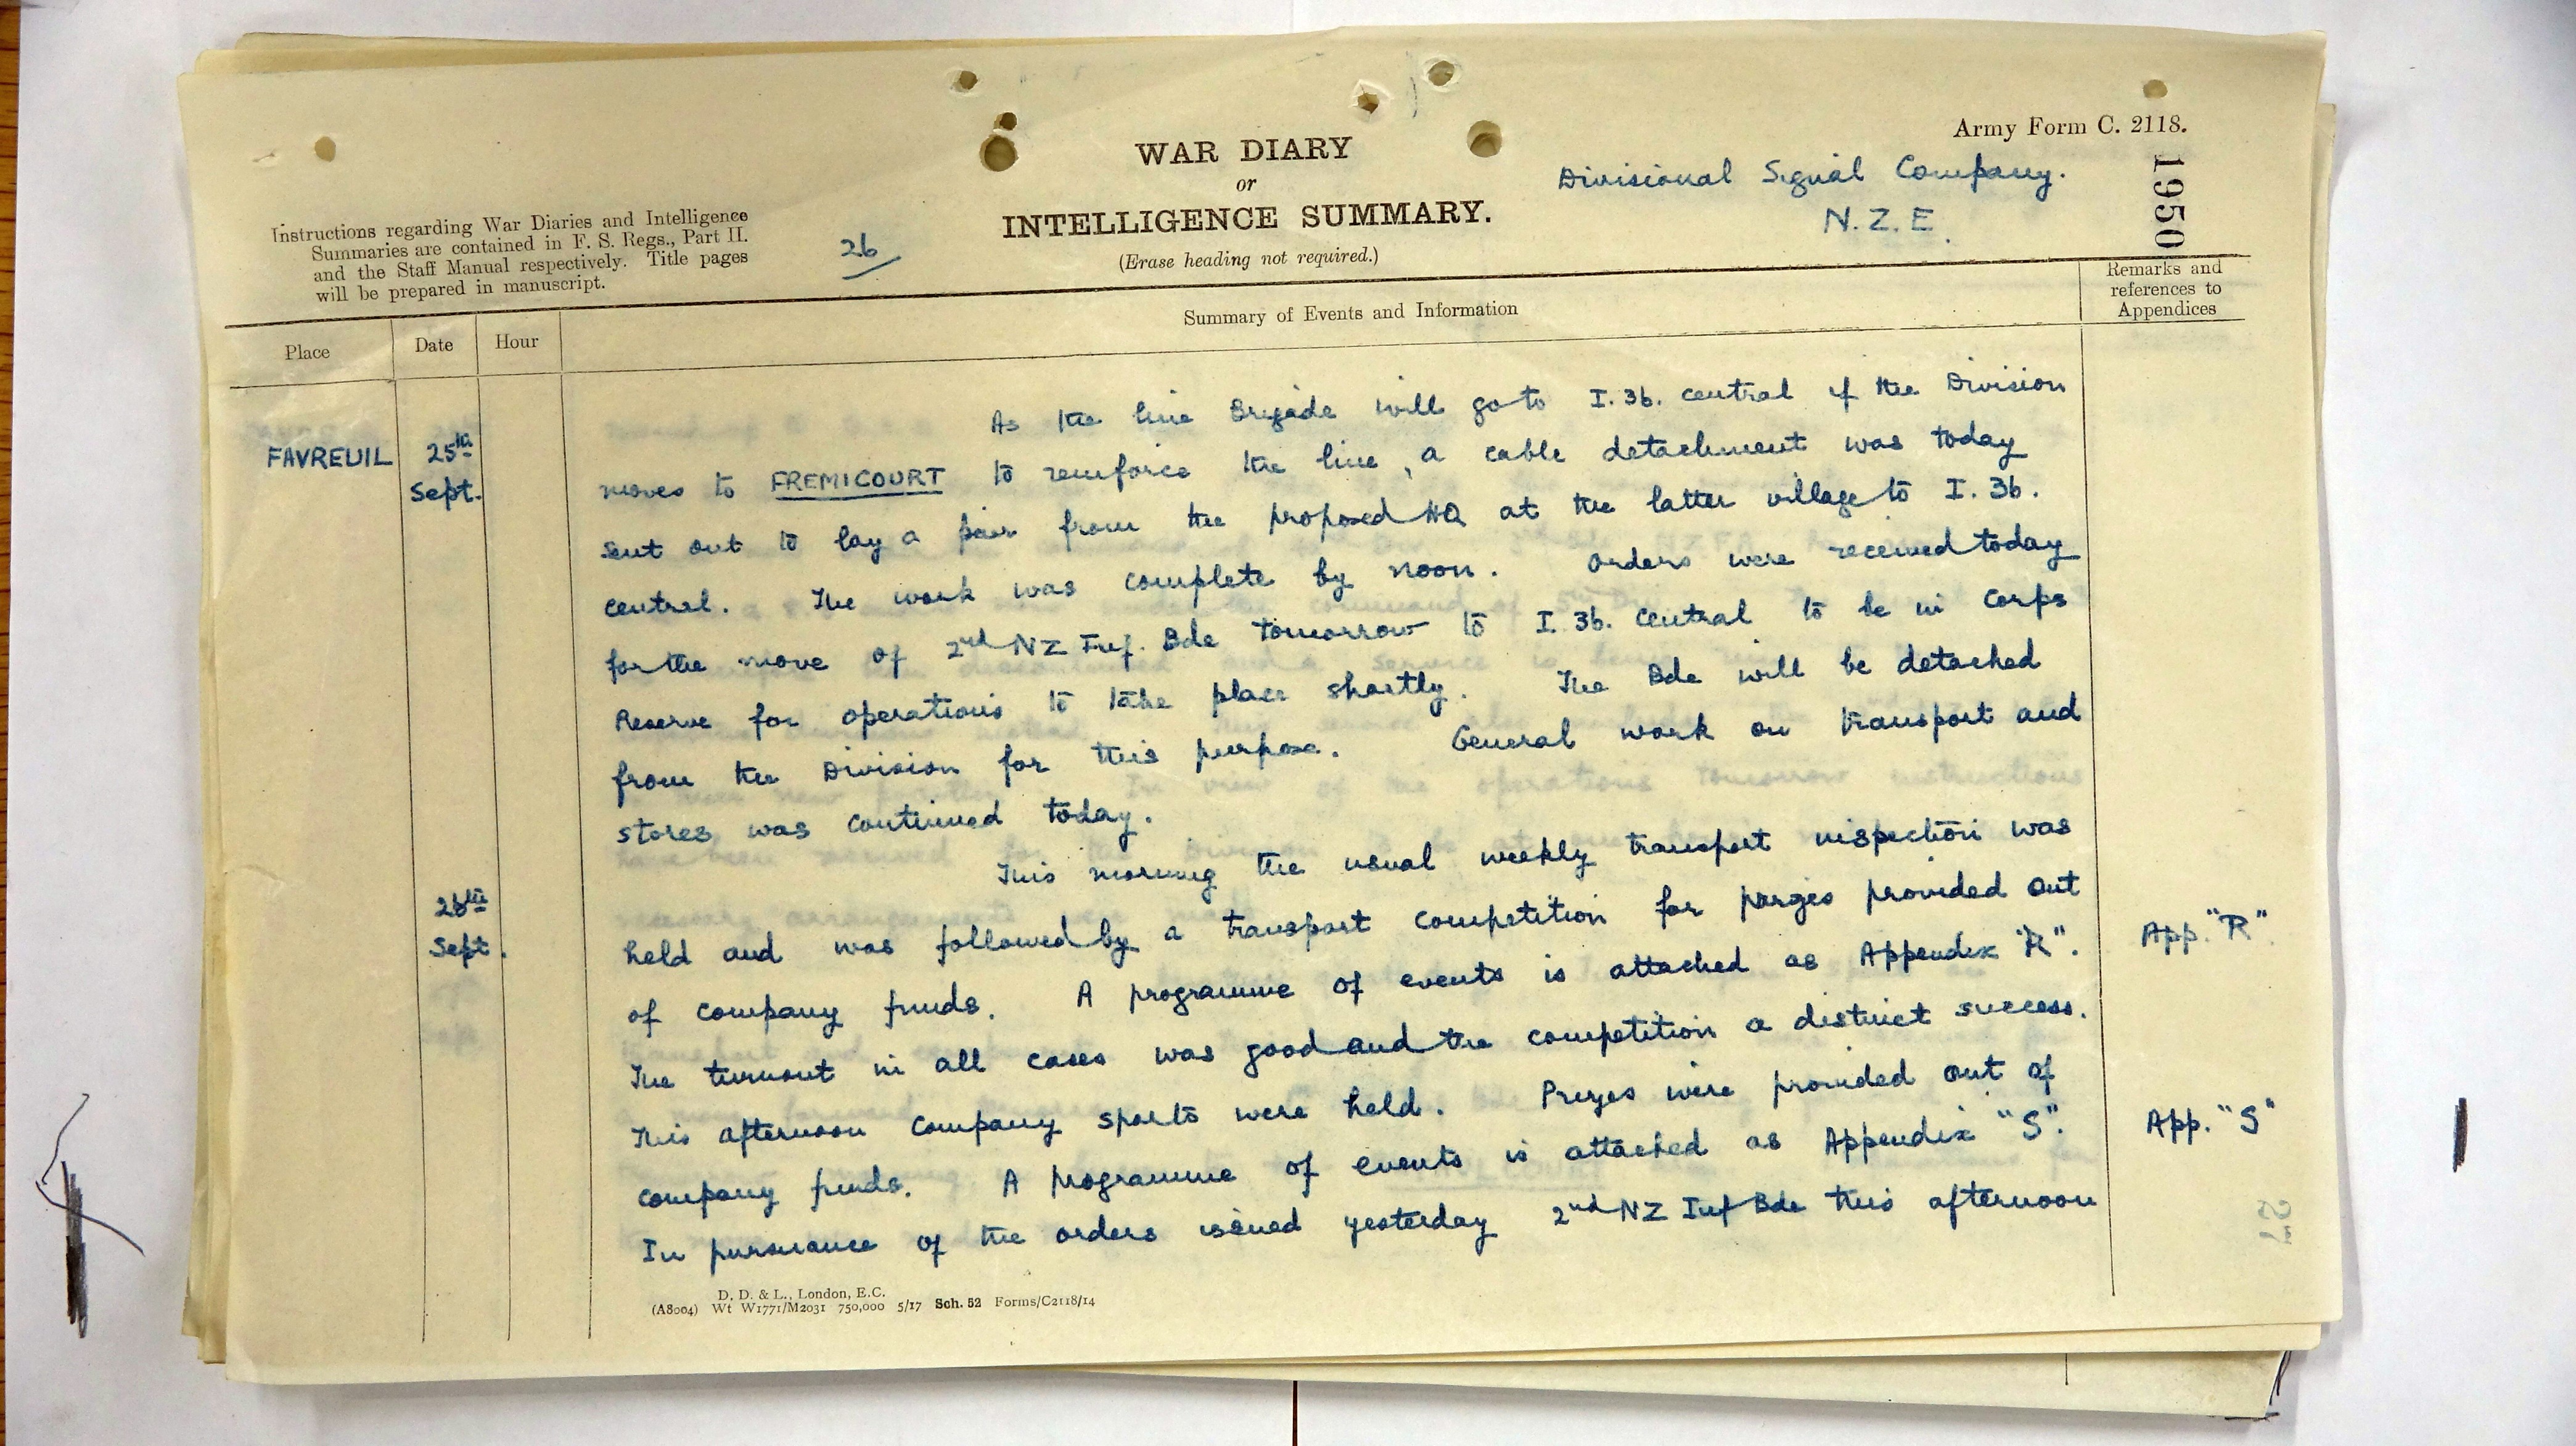 Army Form C. 2118.
WAR DIARY
or
INTELLIGENCE SUMMARY.
(Erase heading not required.)
Divisional Signal Company.
N.Z.E.
1950
Instructions regarding War Diaries and Intelligence
Summaries are contained in F. S. Regs., Part II.
and the Staff Manual respectively. Title pages
will be prepared in manuscript.
26
Place
Date
Hour
Summary of Events and Information
Remarks and
references to
Appendices
FAVREUIL
25th
Sept.
As the line Brigade will go to I.36. central if the Division
moves to FREMICOURT to reinforce the line, a cable detachment was today
sent out to lay a pair from the proposed HQ at the latter village to I.36.
central. The work was complete by noon. Orders were received today
for the move of 2nd NZ Inf. Bde tomorrow to I.36. central to be in Corps
Reserve for operations to take place shortly. The Bde will be detached
from the Division for this purpose. General work on transport and
stores was continued today.
26th
Sept.
This morning the usual weekly transport inspection was
held and was followed by a transport competition for prizes provided out
of company funds. A programme of events is attached as Appendix "R".
App. "R"
The turnout in all cases was good and the competition a distinct success.
This afternoon Company sports were held. Prizes were provided out of
company funds. A programme of events is attached as Appendix "S".
App. "S"
In pursuance of the orders issued yesterday 2nd NZ Inf Bde this afternoon
D. D. & L., London, E.C.
(A8004) Wt W1771/M2031 750,000 5/17 Sch. 52 Forms/C2118/14